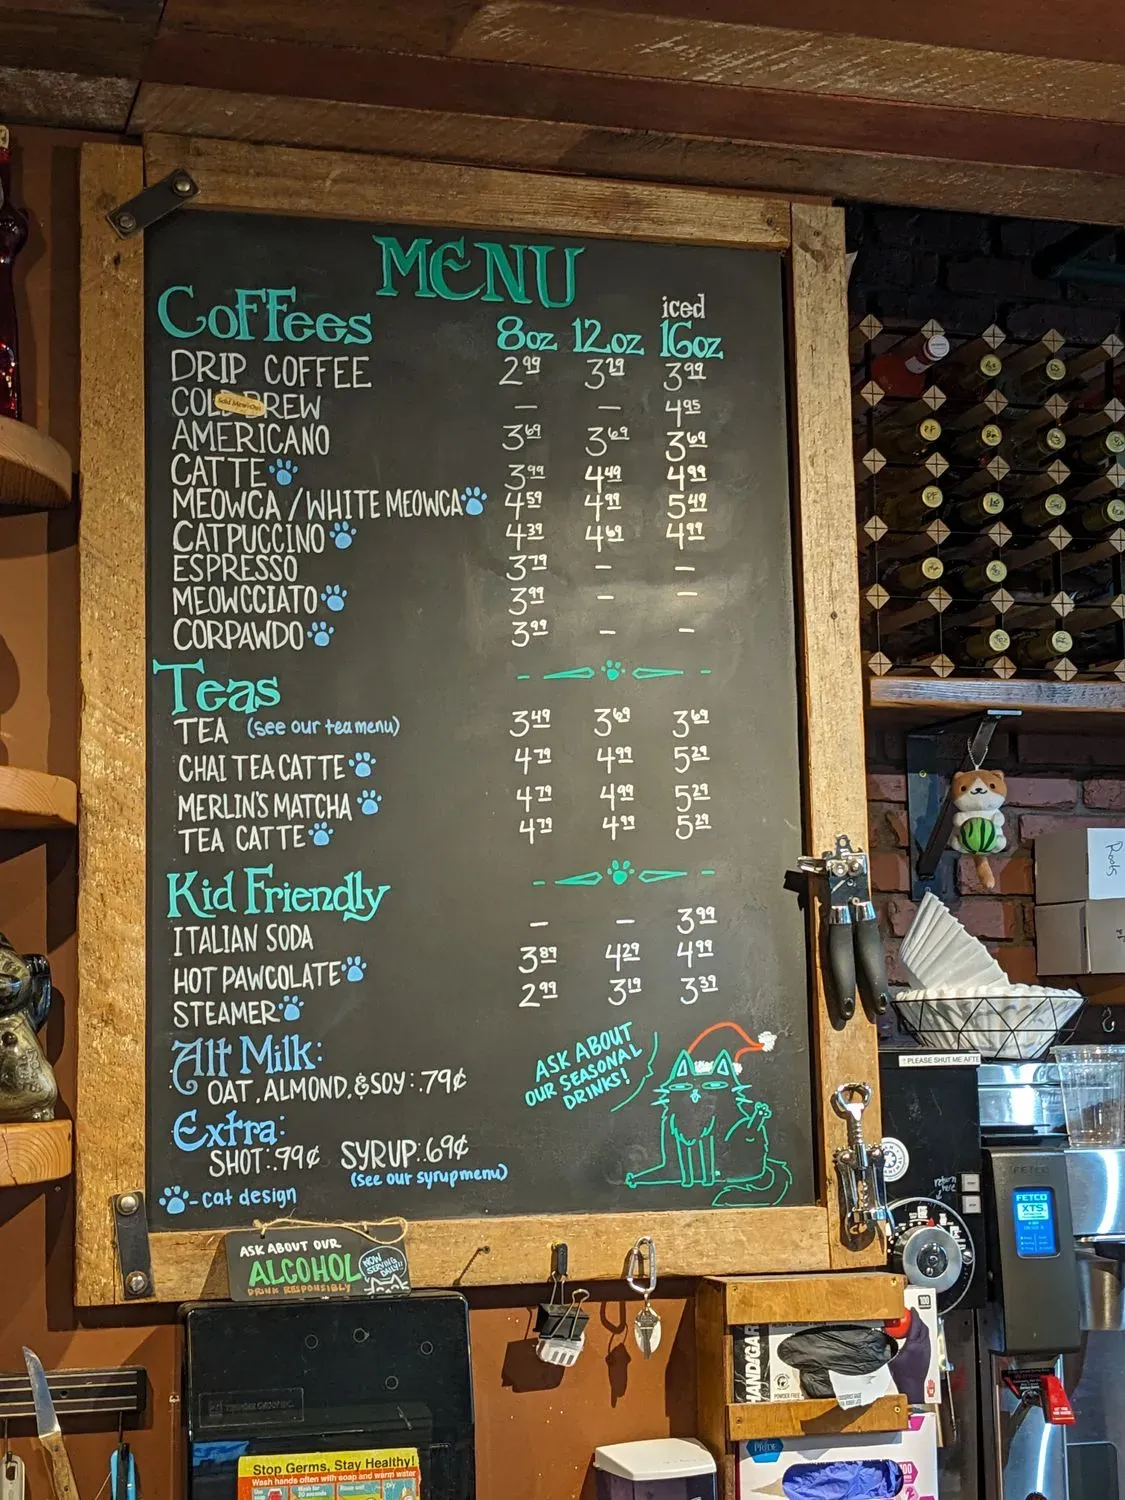 MENU
Coffees
iced
8oz 12oz 16oz
DRIP COFFEE 2.99 3.29 3.99
COLD BREW — 4.95
Sold Meow-Out
AMERICANO 3.69 3.69 3.69
CATTE 3.99 4.49 4.99
MEOWCA / WHITE MEOWCA 4.59 4.99 5.49
CATPUCCINO 4.39 4.69 4.99
ESPRESSO 3.79 – –
MEOWCCIATO 3.99 – –
CORPAWDO 3.99 – –
Teas
TEA (see our tea menu) 3.49 3.69 3.69
CHAI TEA CATTE 4.79 4.99 5.29
MERLIN'S MATCHA 4.79 4.99 5.29
TEA CATTE 4.79 4.99 5.29
Kid Friendly
ITALIAN SODA – – 3.99
HOT PAWCOLATE 3.89 4.29 4.99
STEAMER 2.99 3.19 3.39
Alt Milk:
OAT, ALMOND, & SOY: .79¢
Extra:
SHOT: .99¢ SYRUP: .69¢
(see our syrup menu)
- cat design
ASK ABOUT
OUR SEASONAL
DRINKS!
ASK ABOUT OUR
ALCOHOL
DRINK RESPONSIBLY
NOW
SERVING
DAILY!!
Stop Germs, Stay Healthy!
Wash hands often with soap and warm water
! PLEASE SHUT ME AFTE
return
here
FETCO
FETCO
XTS
HAND/GAR
POWDER FREE
100
PRIDE